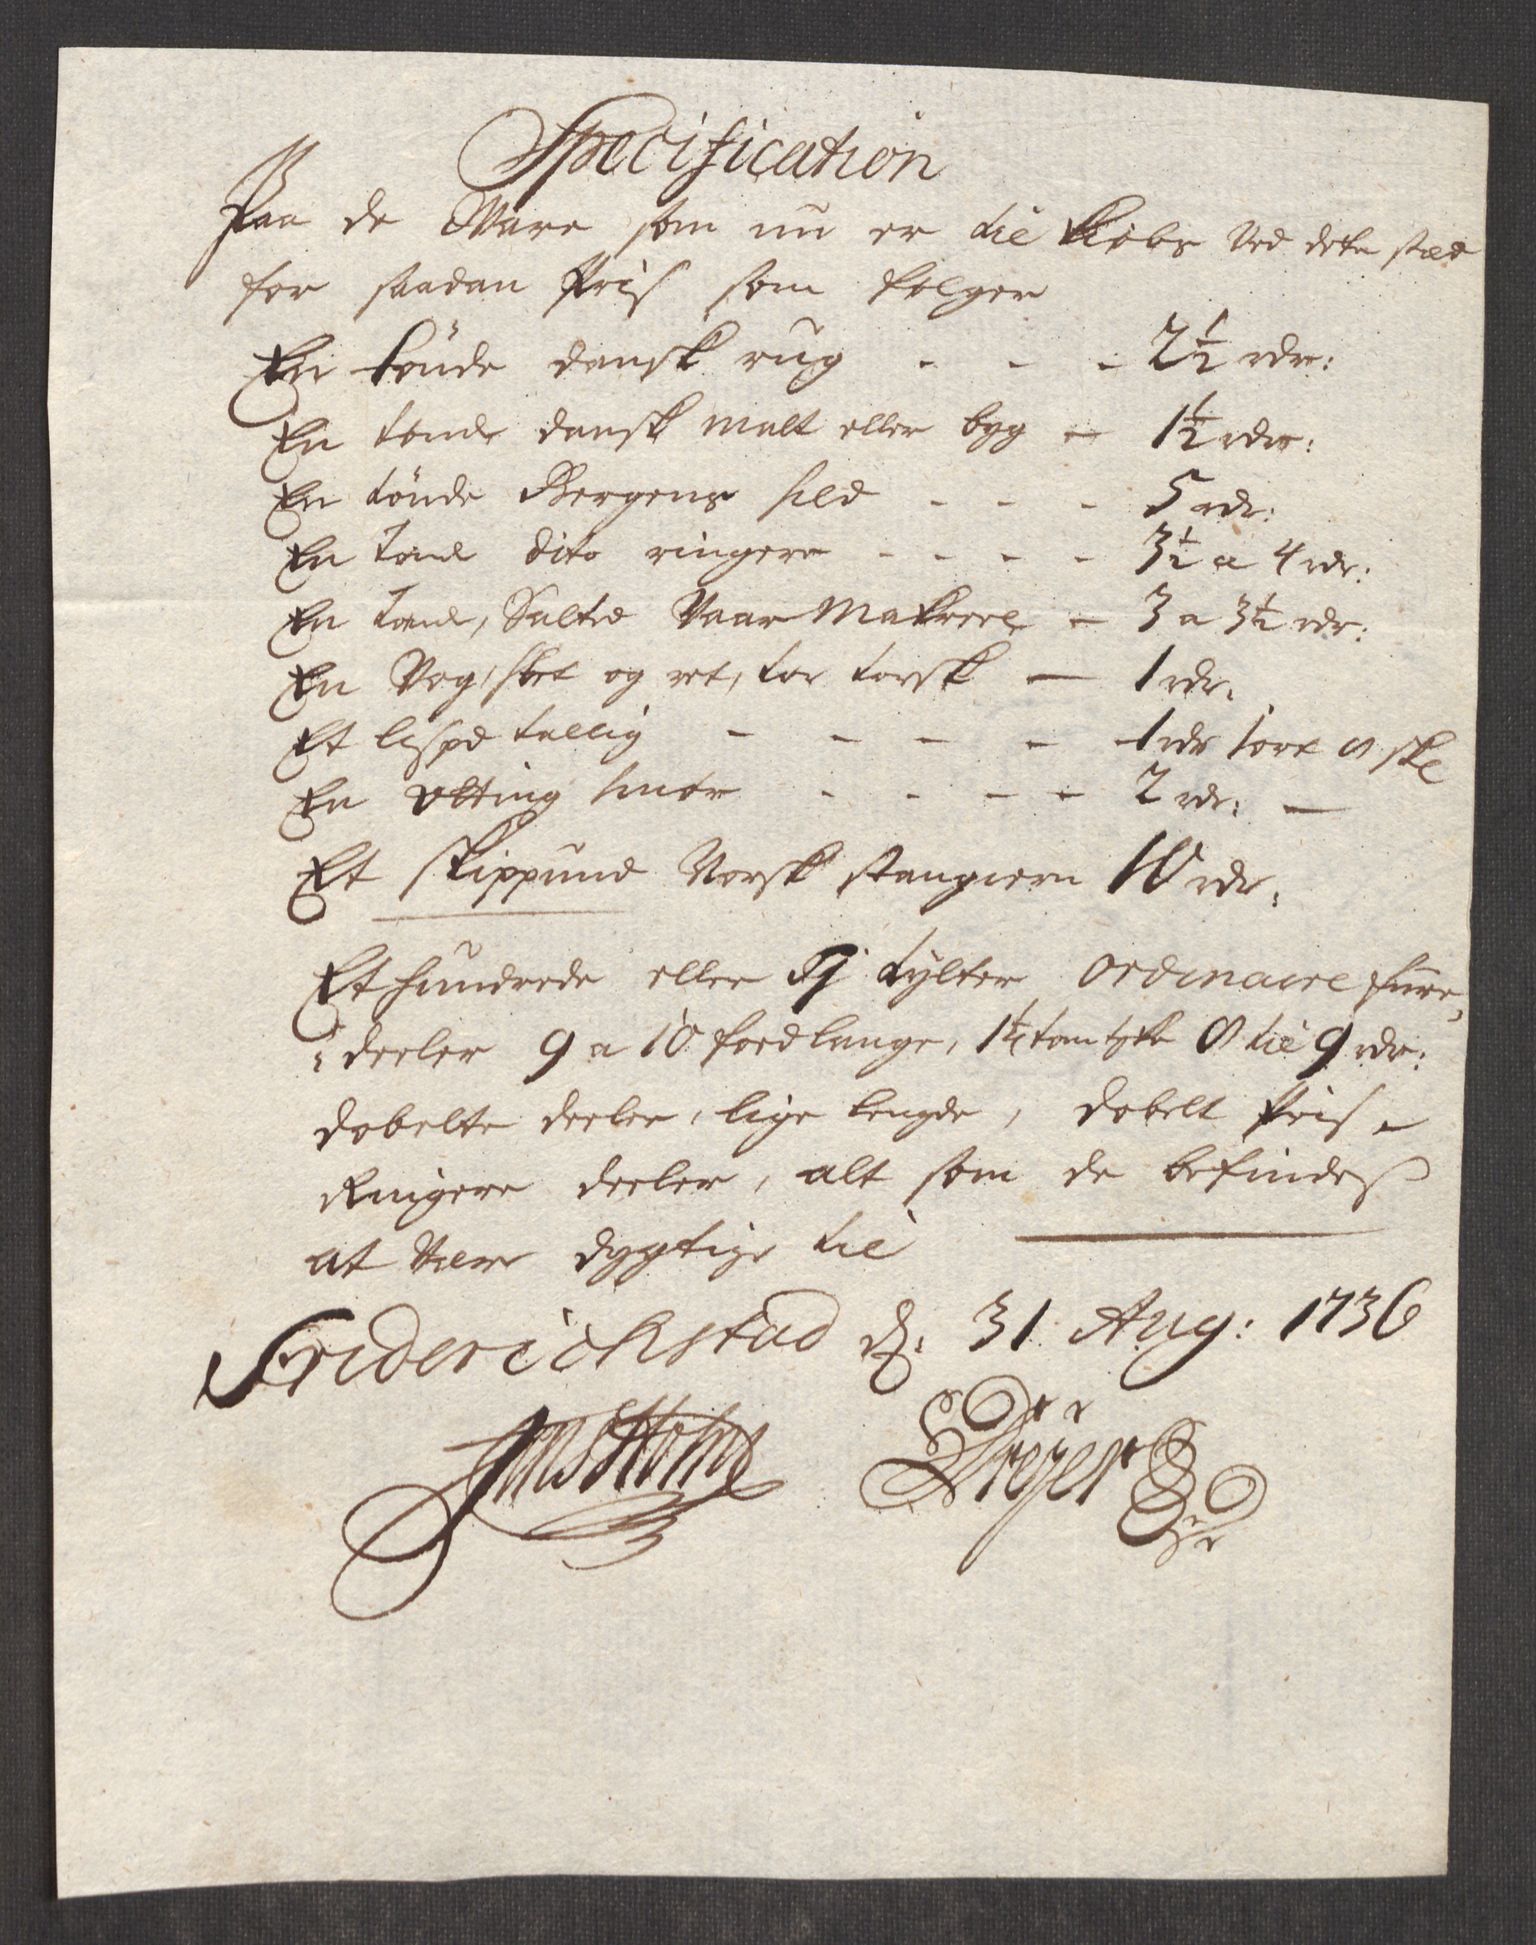 Specification
Paa de Ware som nu er til kiøbs Ved dette stæd
for saadan Priis som følger
En tönde dansk rug - - - 2½ rdr:
En tønde dansk malt eller byg - 1½ rdr:
En tönde Bergens sild - - - 5 rdr:
En Tønde dito ringere - - - - 3½ a 4 rdr:
En Tønde, Salted Vaar Makreel - 3 a 3½ rdr:
En Vog, og ret, tør torsk - 1 rdr.
Et lispd tallig - - - - 1 rdr 8 skl
En otting smør - - - - 2 rdr: -
Et skippund Norsk stangiern 10 rdr.
Et hundrede eller tylter ordinaire fure,
deeler 9 a 10 foed lange, 1¼ tom tyke 8 til 9 rdr:
dobelte deeler, lige lengde, dobelt Priis -
Ringere deeler, alt som de befindes
at være dygtige til
Friderichstad d: 31 Aug: 1736
Dreÿer